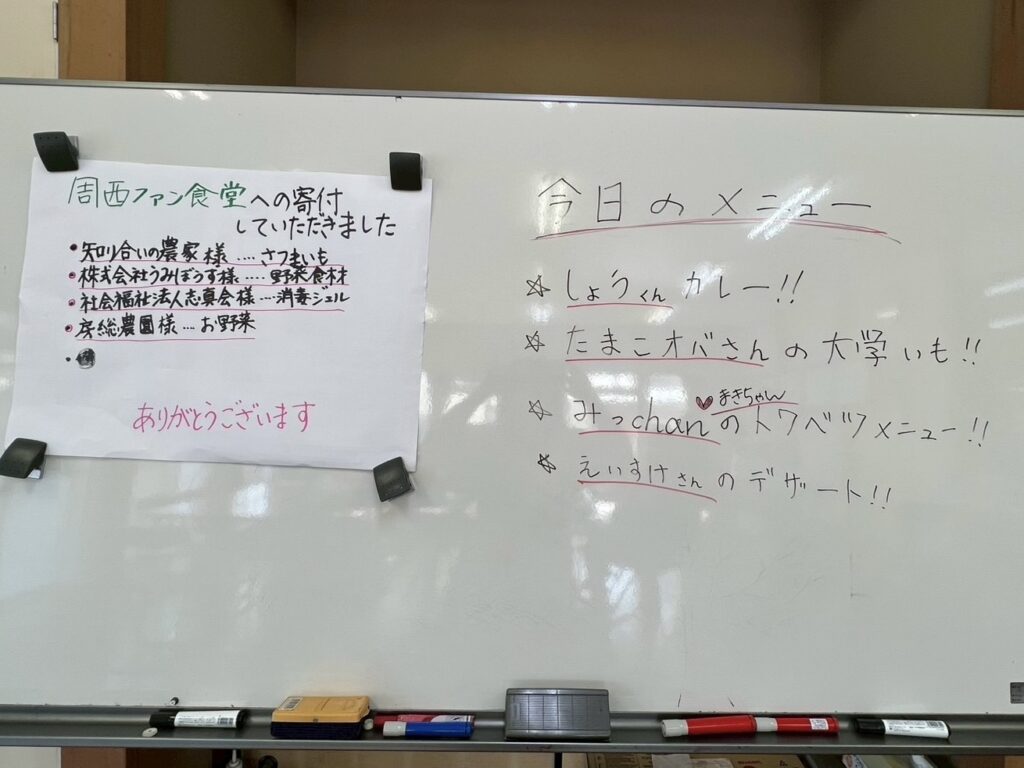 周西ファン食堂への寄付
していただきました
• 知り合いの農家様 .... さつまいも
• 株式会社うみぼうず様 .... 野菜食材
• 社会福祉法人志真会様 .... 消毒ジェル
• 房総農園様 .... お野菜
•
ありがとうございます
今日のメニュー
☆ しょうくんカレー!!
☆ たまこオバさんの大学いも!!
♥まきちゃん
☆ みっchanのトクベツメニュー!!
☆ えいすけさんのデザート!!